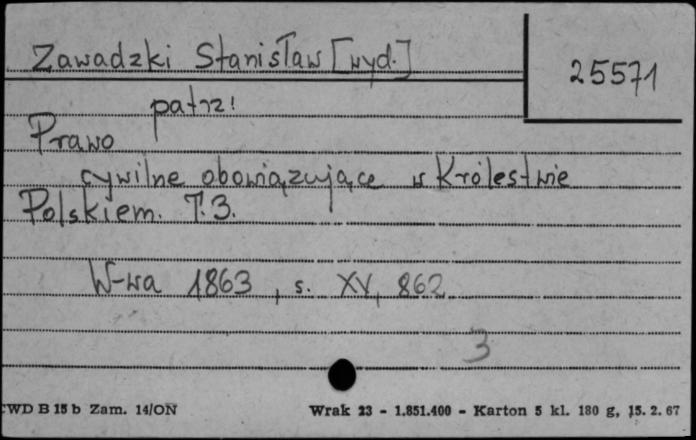 Zawadzki Stanisław [wyd.]
25571
patrz!
Prawo
cywilne obowiązujące w Królestwie
Polskiem. T. 3.
W-wa 1863, s. XV, 862
3
CWD B 15 b Zam. 14/ON
Wrak 23 - 1.851.400 - Karton 5 kl. 180 g, 15. 2. 67